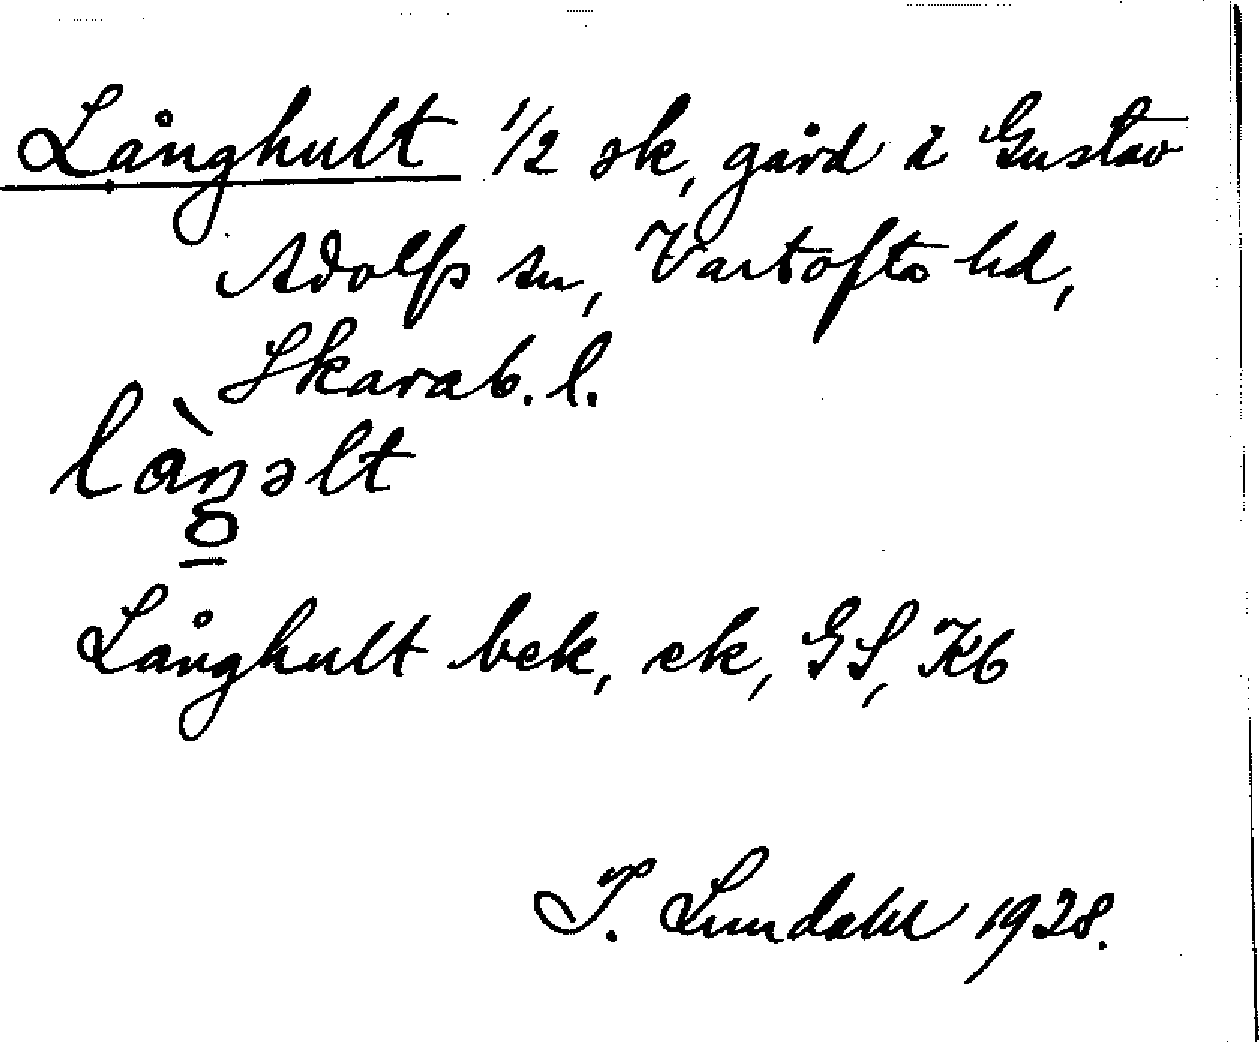 Långhult 1/2 sk, gård i Gustav
Adolfs sn, Vartofta hd,
Skarab. l.
làŋəlt
Långhult bek, ek, GS, Kb
I. Lundahl 1928.